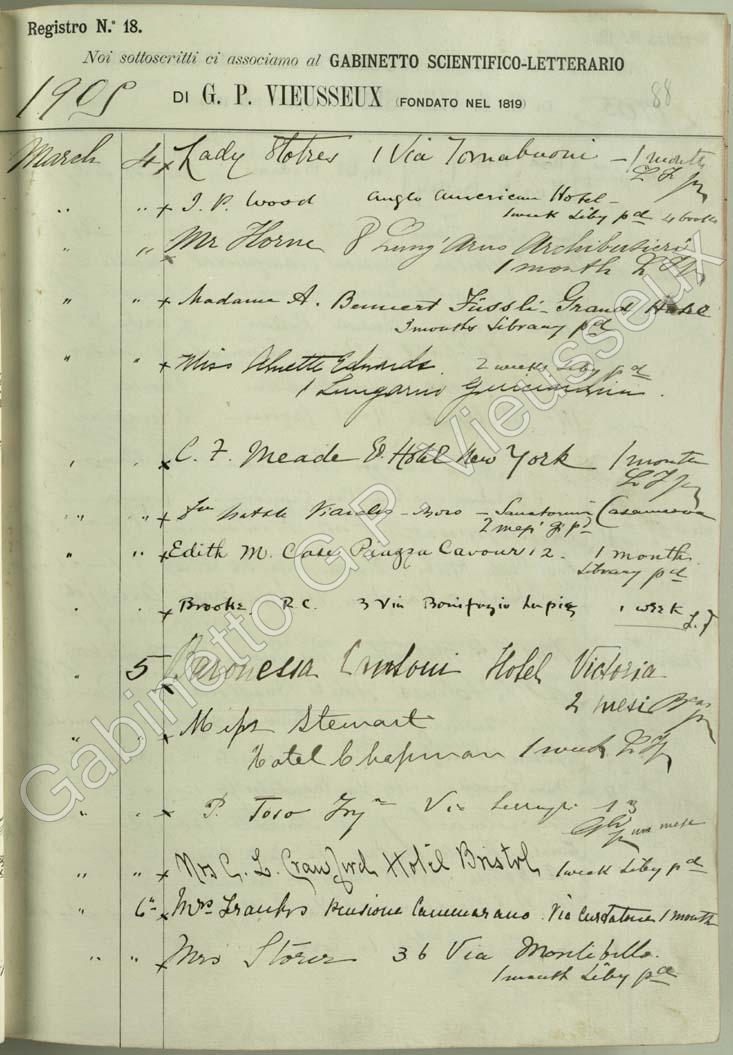 Registro N.º 18.
Noi sottoscritti ci associamo al GABINETTO SCIENTIFICO-LETTERARIO
1905 DI G. P. VIEUSSEUX (FONDATO NEL 1819) 88
March 4 x Lady 1 Via Tornabuoni - 1 month
" " x J. P. Wood Anglo American Hotel -
1 week Liby pd 4 books
" " x Mr Horne 8 Lung'Arno Archibusieri
1 month
" " x Madame A. Füssli - Grand Hotel
3 months Library pd
" " x Miss Edwards. 2 weeks Liby pd
1 Lungarno Guicciardini.
" " x C. F. Meade Hotel New York 1 month
" " x Casanuova
2 mesi
" " x Edith M. Case, Piazza Cavour 12. 1 month
Library pd
" " x Brooke R.C. 3 Via Bonifazio Lupi 1 week
" 5 x Baronessa Hotel Victoria
2 mesi
" " x Miss Stewart
Hotel Chapman 1 week
" " x P. Toso Via 13
un mese
" " x Mrs G. L. Crawford Hotel Bristol 1 week Liby pd
" 6 " x Mrs Pensione Cammarano. Via Curtatone 1 month
" " x Mrs Storer 36 Via Montebello.
1 month Liby pd
Gabinetto G.P. Vieusseux